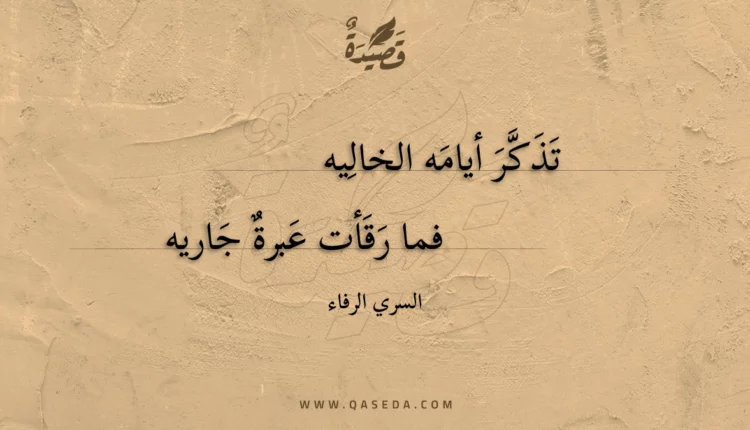 قَصِيْدَةٌ
تَذَكَّرَ أيامَه الخالِيه
فما رَقَأت عَبرةٌ جَاريه
السري الرفاء
WWW.QASEDA.COM